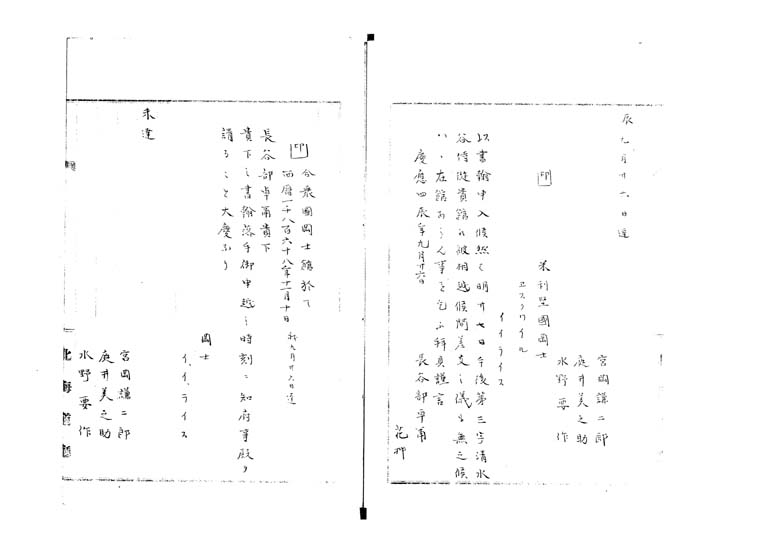 辰九月廿六日達
印
米利堅國岡士
ヱスクワイル
イイライス
宮岡謙二郎
庭井美之助
水野要作
以書翰申入候然く明廿七日午後第三字清水
谷侍従貴館江被相越候間差支之儀も無之候
ハヽ在館あらん事を乞ふ拝具謹言
慶應四辰年九月廿六日
長谷部卓爾
花押
印
合衆國岡士館於て
西暦一千八百六十八年十一月十日
我九月廿六日達
長谷部卓爾貴下
貴下之書翰落手御申越之時刻ニ知府事殿ヲ
請ることヽ大慶なり
岡士
イ、イ、ライス
宮岡謙二郎
庭井美之助
水野要作
未達
北海道廳